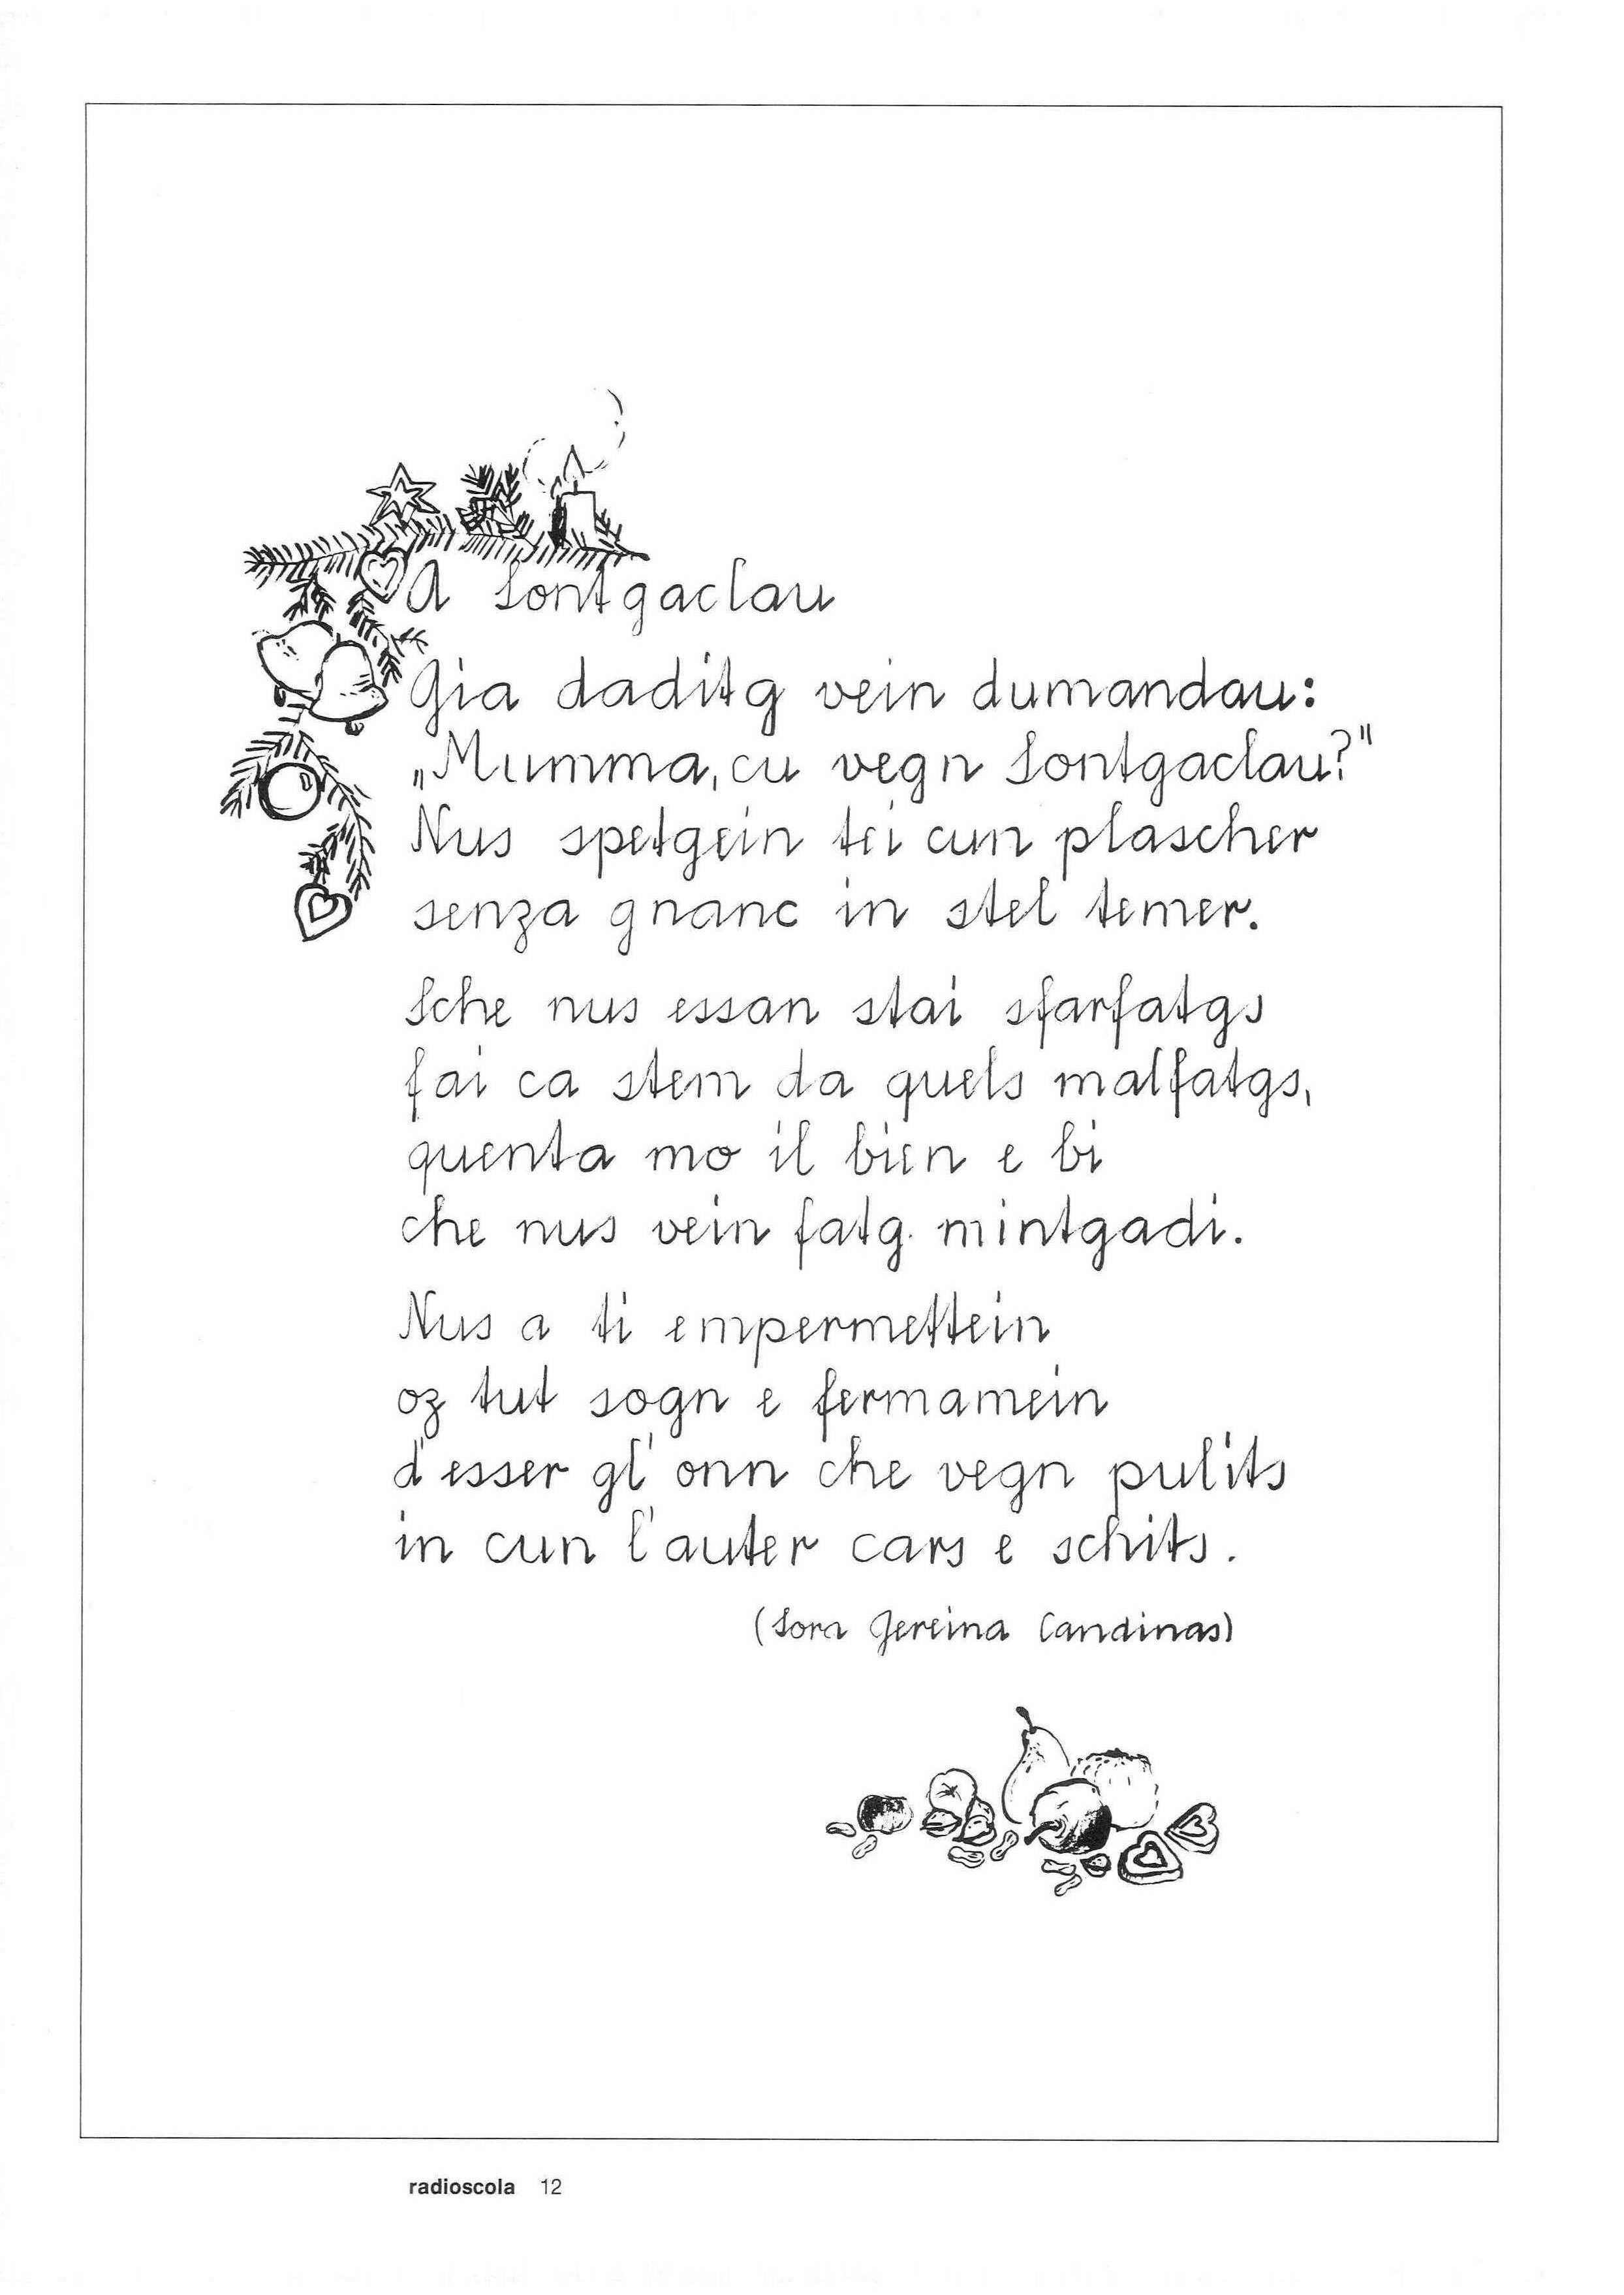 A Sontgaclau
Gia daditg vein dumandau:
„Mumma, cu vegn Sontgaclau?"
Nus spetgein tei cun plascher
senza gnanc in stel temer.
Sche nus essan stai sfarfatgs
fai ca stem da quels malfatgs,
quenta mo il bien e bi
che nus vein fatg mintgadi.
Nus a ti empermettein
oz tut sogn e fermamein
d'esser gl' onn che vegn pulits
in cun l'auter cars e schits.
(Sora Jereina Candinas)
radioscola 12